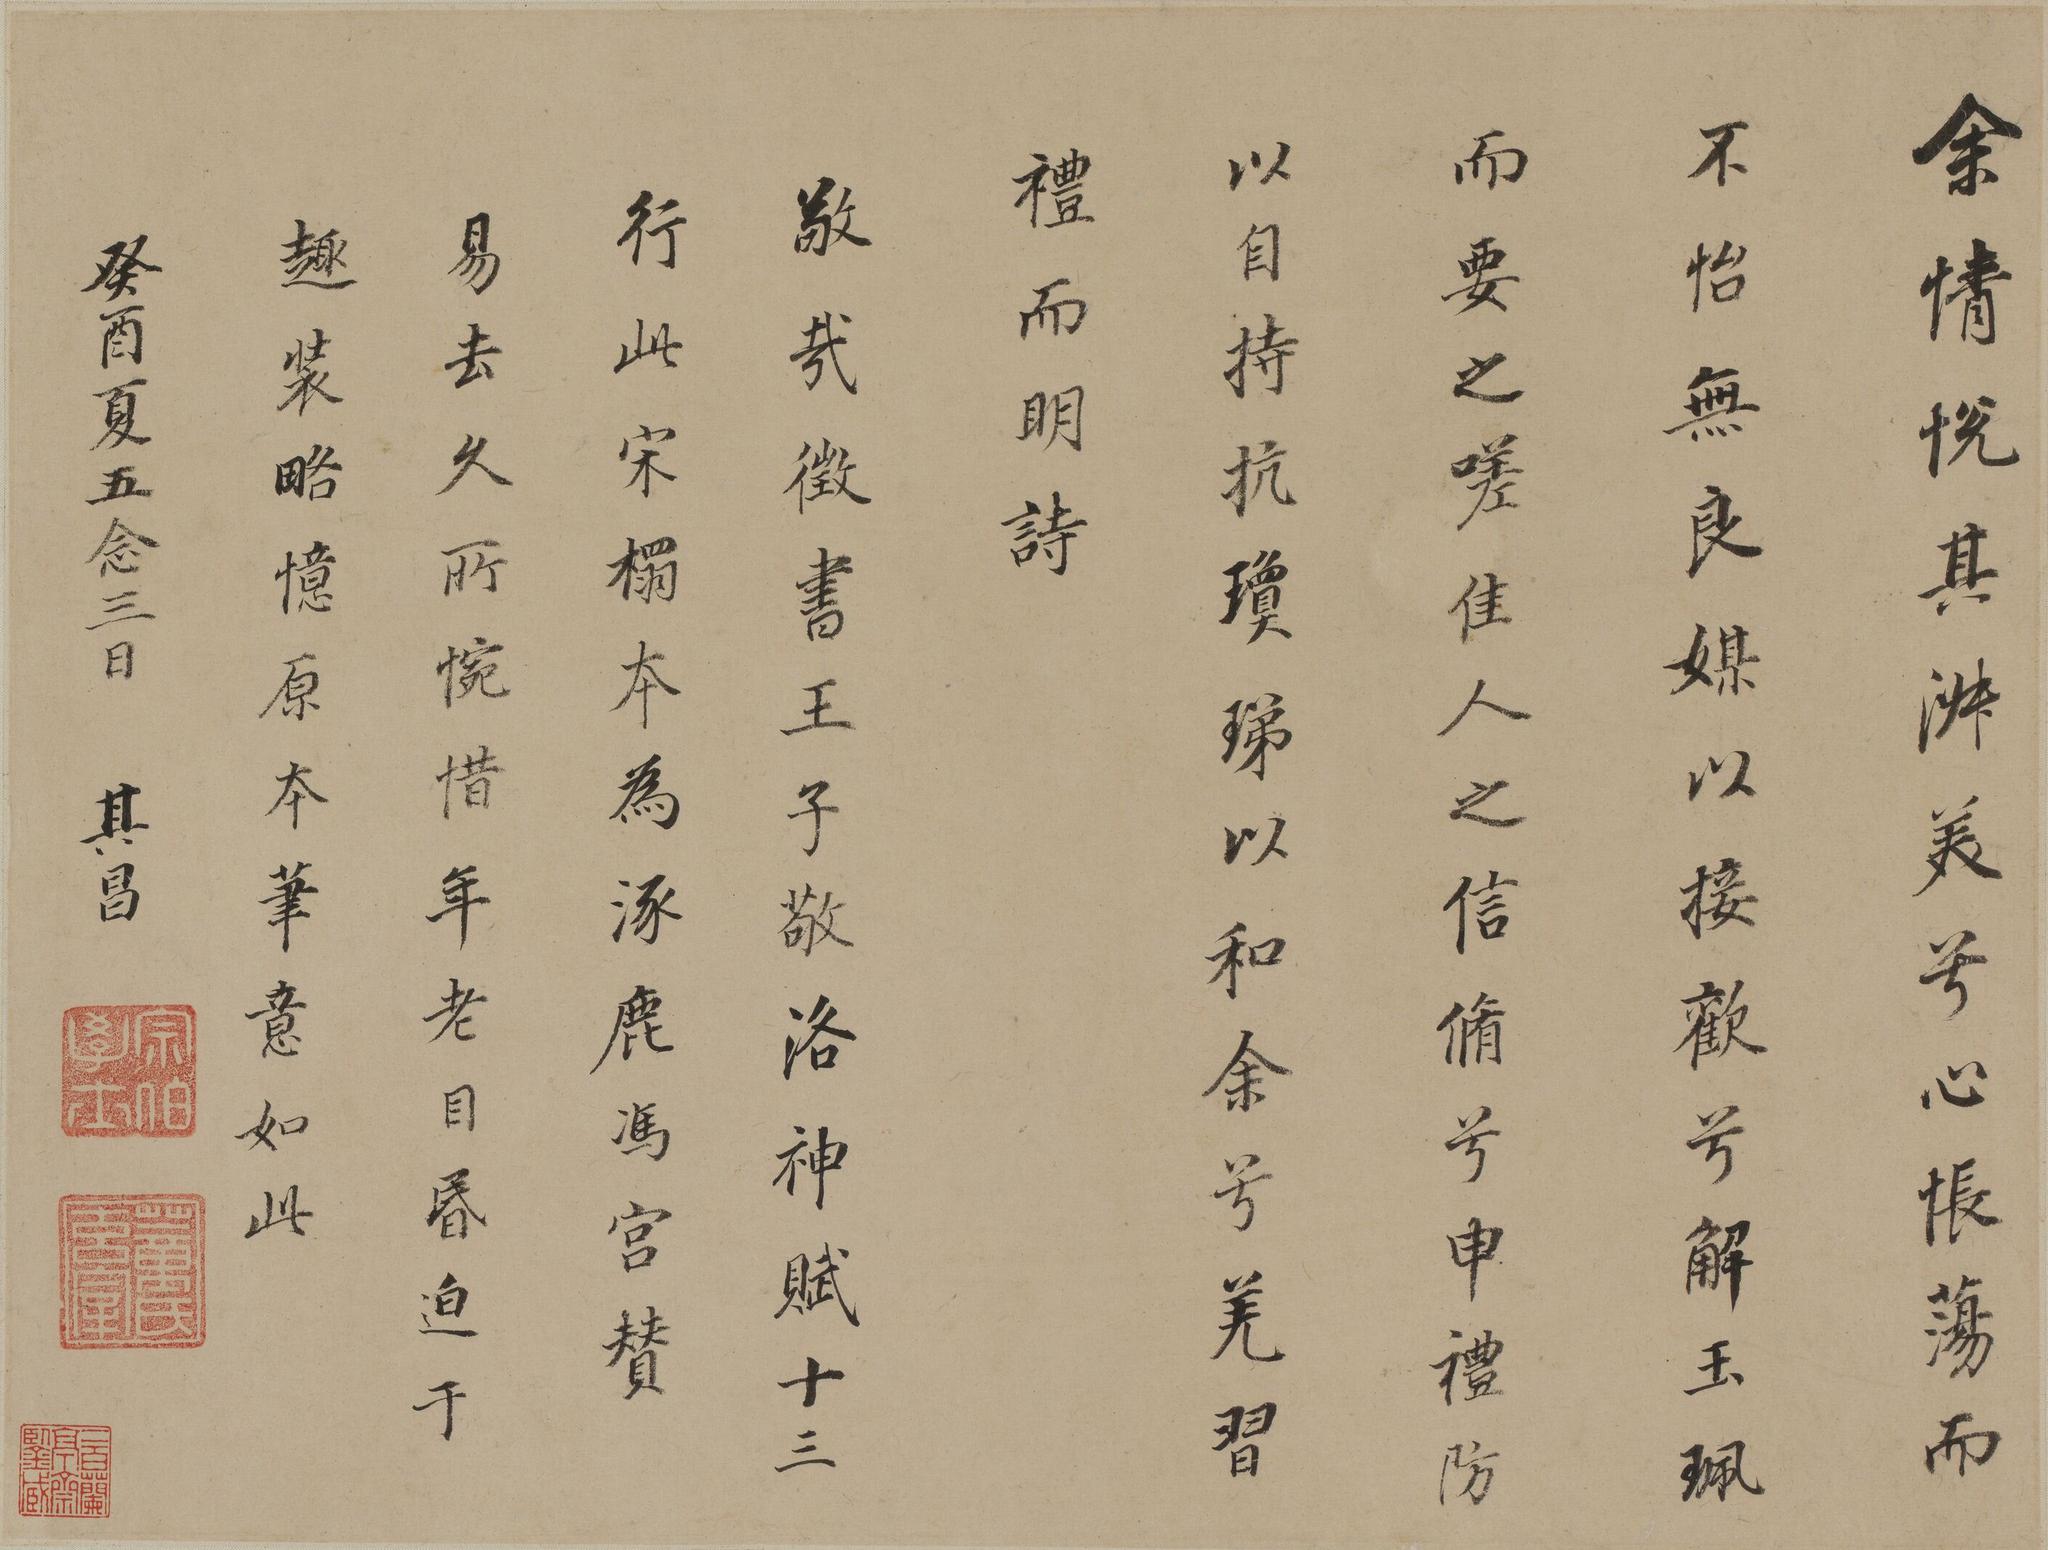 余情悅其淑美兮心悵蕩而
不怡無良媒以接歡兮解玉珮
而要之嗟佳人之信脩兮申禮防
以自持抗瓊珶以和余兮羌習
禮而明詩
敬哉徵書王子敬洛神賦十三
行此宋榻本為涿鹿馮宮贊
易去久所惋惜年老目昏迫于
趣裝略憶原本筆意如此
癸酉夏五念三日 其昌
宗伯學士
董氏玄宰
三百蘭亭齋鑒藏